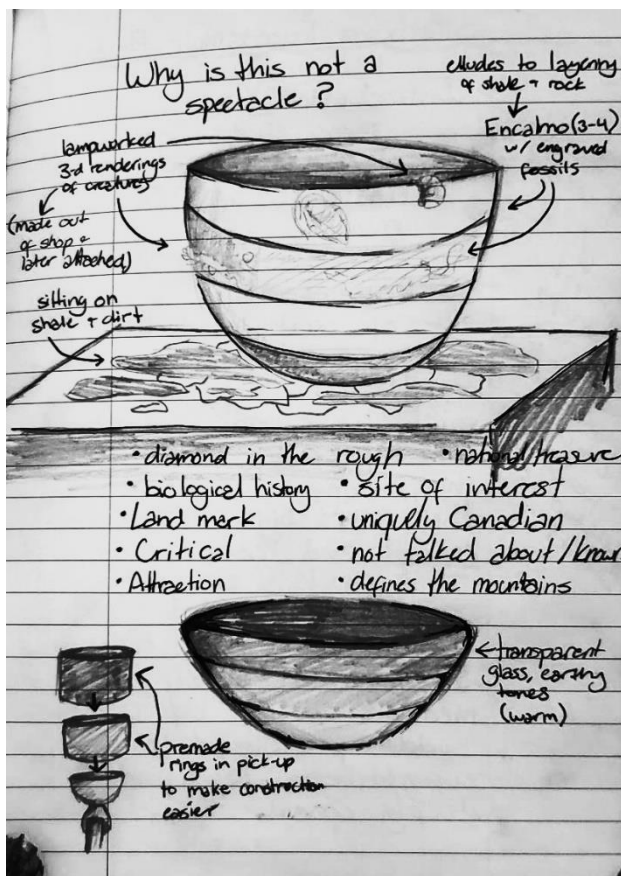 Why is this not a
spectacle?
elludes to layering
of shale + rock
Encalmo (3-4)
w/ engraved
fossils
lampworked
3-d renderings
of creatures
(made out
of shop +
later attached)
sitting on
shale + dirt
• diamond in the rough
• biological history
• Land mark
• Critical
• Attraction
• national treasure
• site of interest
• uniquely Canadian
• not talked about/known
• defines the mountains
transparent
glass, earthy
tones
(warm)
premade
rings in pick-up
to make construction
easier